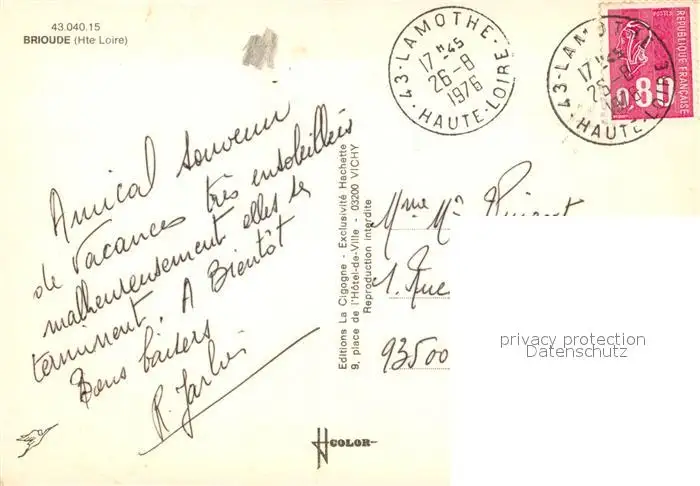 43.040.15
BRIOUDE (Hte Loire)
Amical souvenir
de vacances très ensoleillées
malheureusement elles se
terminent. A Bientôt
Bons baisers
R.
Editions La Cigogne - Exclusivité Hachette
9, place de l'Hôtel-de-Ville - 03200 VICHY
Reproduction interdite
COLOR
43-LAMOTHE-
17H45
26-8
1976
HAUTE-LOIRE
43-LAMOTHE
17H45
26-8
1976
HAUTE-LOIRE
POSTES
REPUBLIQUE FRANÇAISE
0,80
Mme Mr
1. Rue
93500
privacy protection
Datenschutz